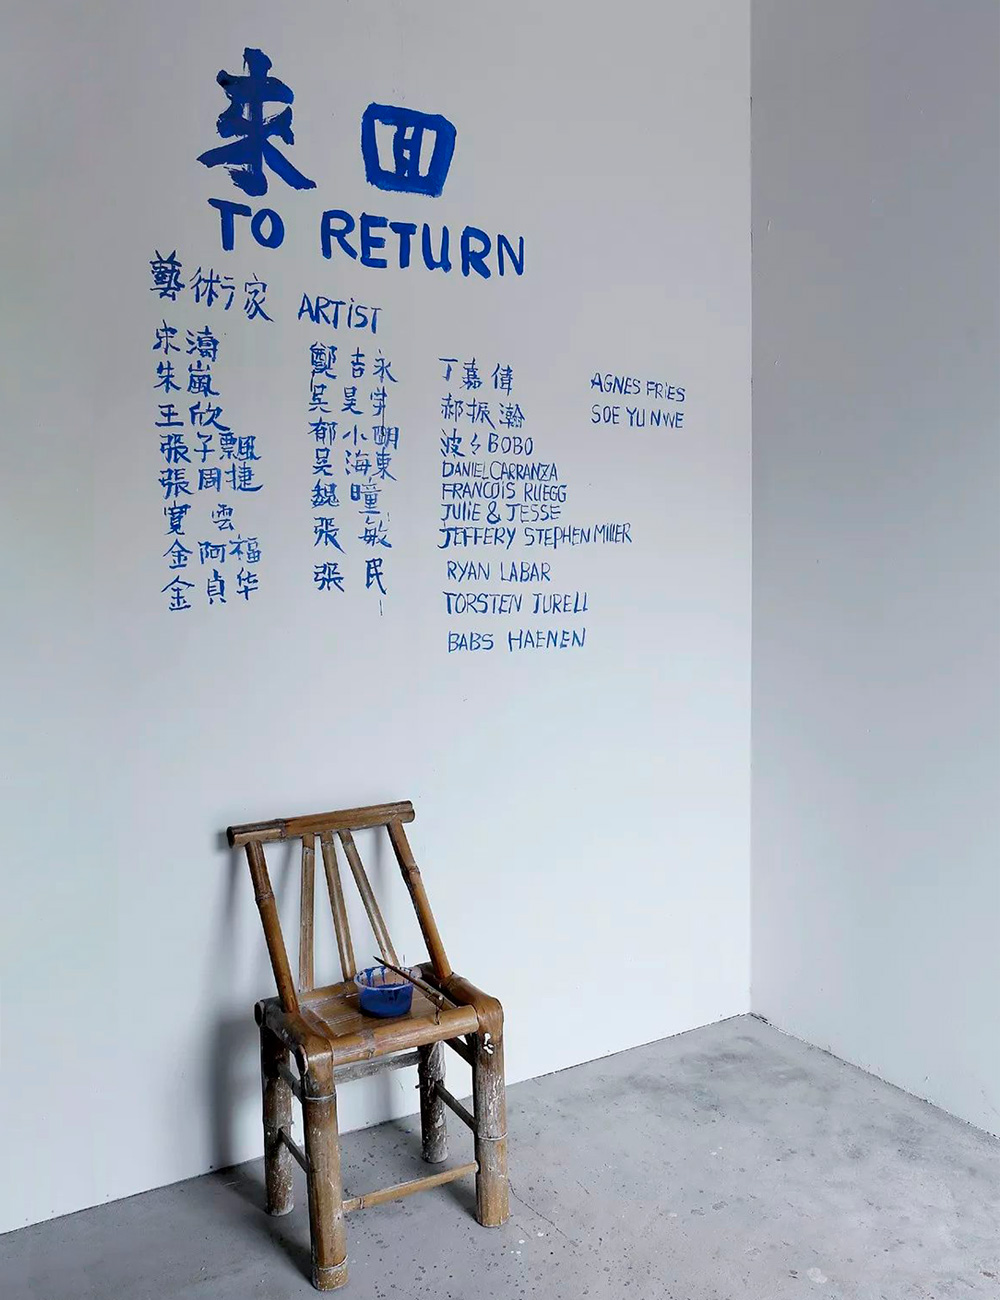 來回
TO RETURN
藝術家 ARTiST
宋濤
朱嵐
王欣
張子飄
張周捷
寬雲
金阿福
金貞华
鄭吉永
吳昊宇
郁小明
吳海東
魏曈
張敏
張民
丁嘉偉
郝振瀚
波々BOBO
DANIEL CARRANZA
FRANCOIS RUEGG
JULiE & JESSE
JEFFERY STEPHEN MILLER
RYAN LABAR
TORSTEN JURELL
BABS HAENEN
AGNES FRiES
SOE YU NWE